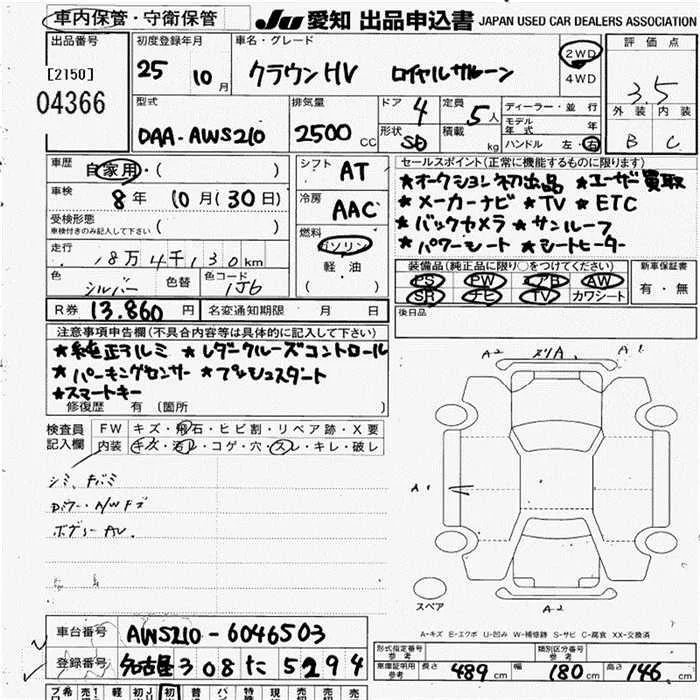 車内保管・守衛保管
JU 愛知 出品申込書 JAPAN USED CAR DEALERS ASSOCIATION
出品番号
[2150]
04366
初度登録年月
25 10月
車名・グレード
クラウンHV ロイヤルサルーン
2WD
4WD
評価点
3.5
外装 内装
B C
型式
DAA-AWS210
排気量
2500 CC
ドア 4
形状 SD
定員 5人
積載 kg
ディーラー・並行
モデル年式 年
ハンドル 左・右
車歴 自家用・( )
車検 8年 10月(30日)
受検形態
車検付きのみ記入して下さい ( )
走行 18万4千130km
色 シルバー 色替 色コード 1J6
シフト AT
冷房 AAC
燃料
ガソリン
軽油
( )
セールスポイント(正常に機能するものに限ります)
★オークション初出品 ★ユーザー買取
★メーカーナビ ★TV ★ETC
★バックカメラ ★サンルーフ
★パワーシート ★シートヒーター
装備品(純正品に限り○をつけてください)
PS PW エアB AW
SR ナビ TV カワシート
新車保証書
有・無
後日品
R券 13.860円 名変通知期限 月 日
注意事項申告欄(不具合内容等は具体的に記入して下さい)
★純正アルミ ★レダークルーズコントロール
★パーキングセンサー ★プッシュスタート
★スマートキー
修復歴 有(箇所 )
検査員記入欄
FW キズ・飛石・ヒビ割・リペア跡・X要
内装 キズ・汚レ・コゲ・穴・スレ・キレ・破レ
A2 A1
A1
A-2
スペア
A-キズ E-エクボ U-凹み W-補修跡 S-サビ C-腐食 XX-交換済
車台番号 AWS210-6046503
登録番号 名古屋308た5294
形式指定番号
参考
類別区分番号
参考
車庫証明用
参考
長さ 489cm 幅 180cm 高さ 146cm